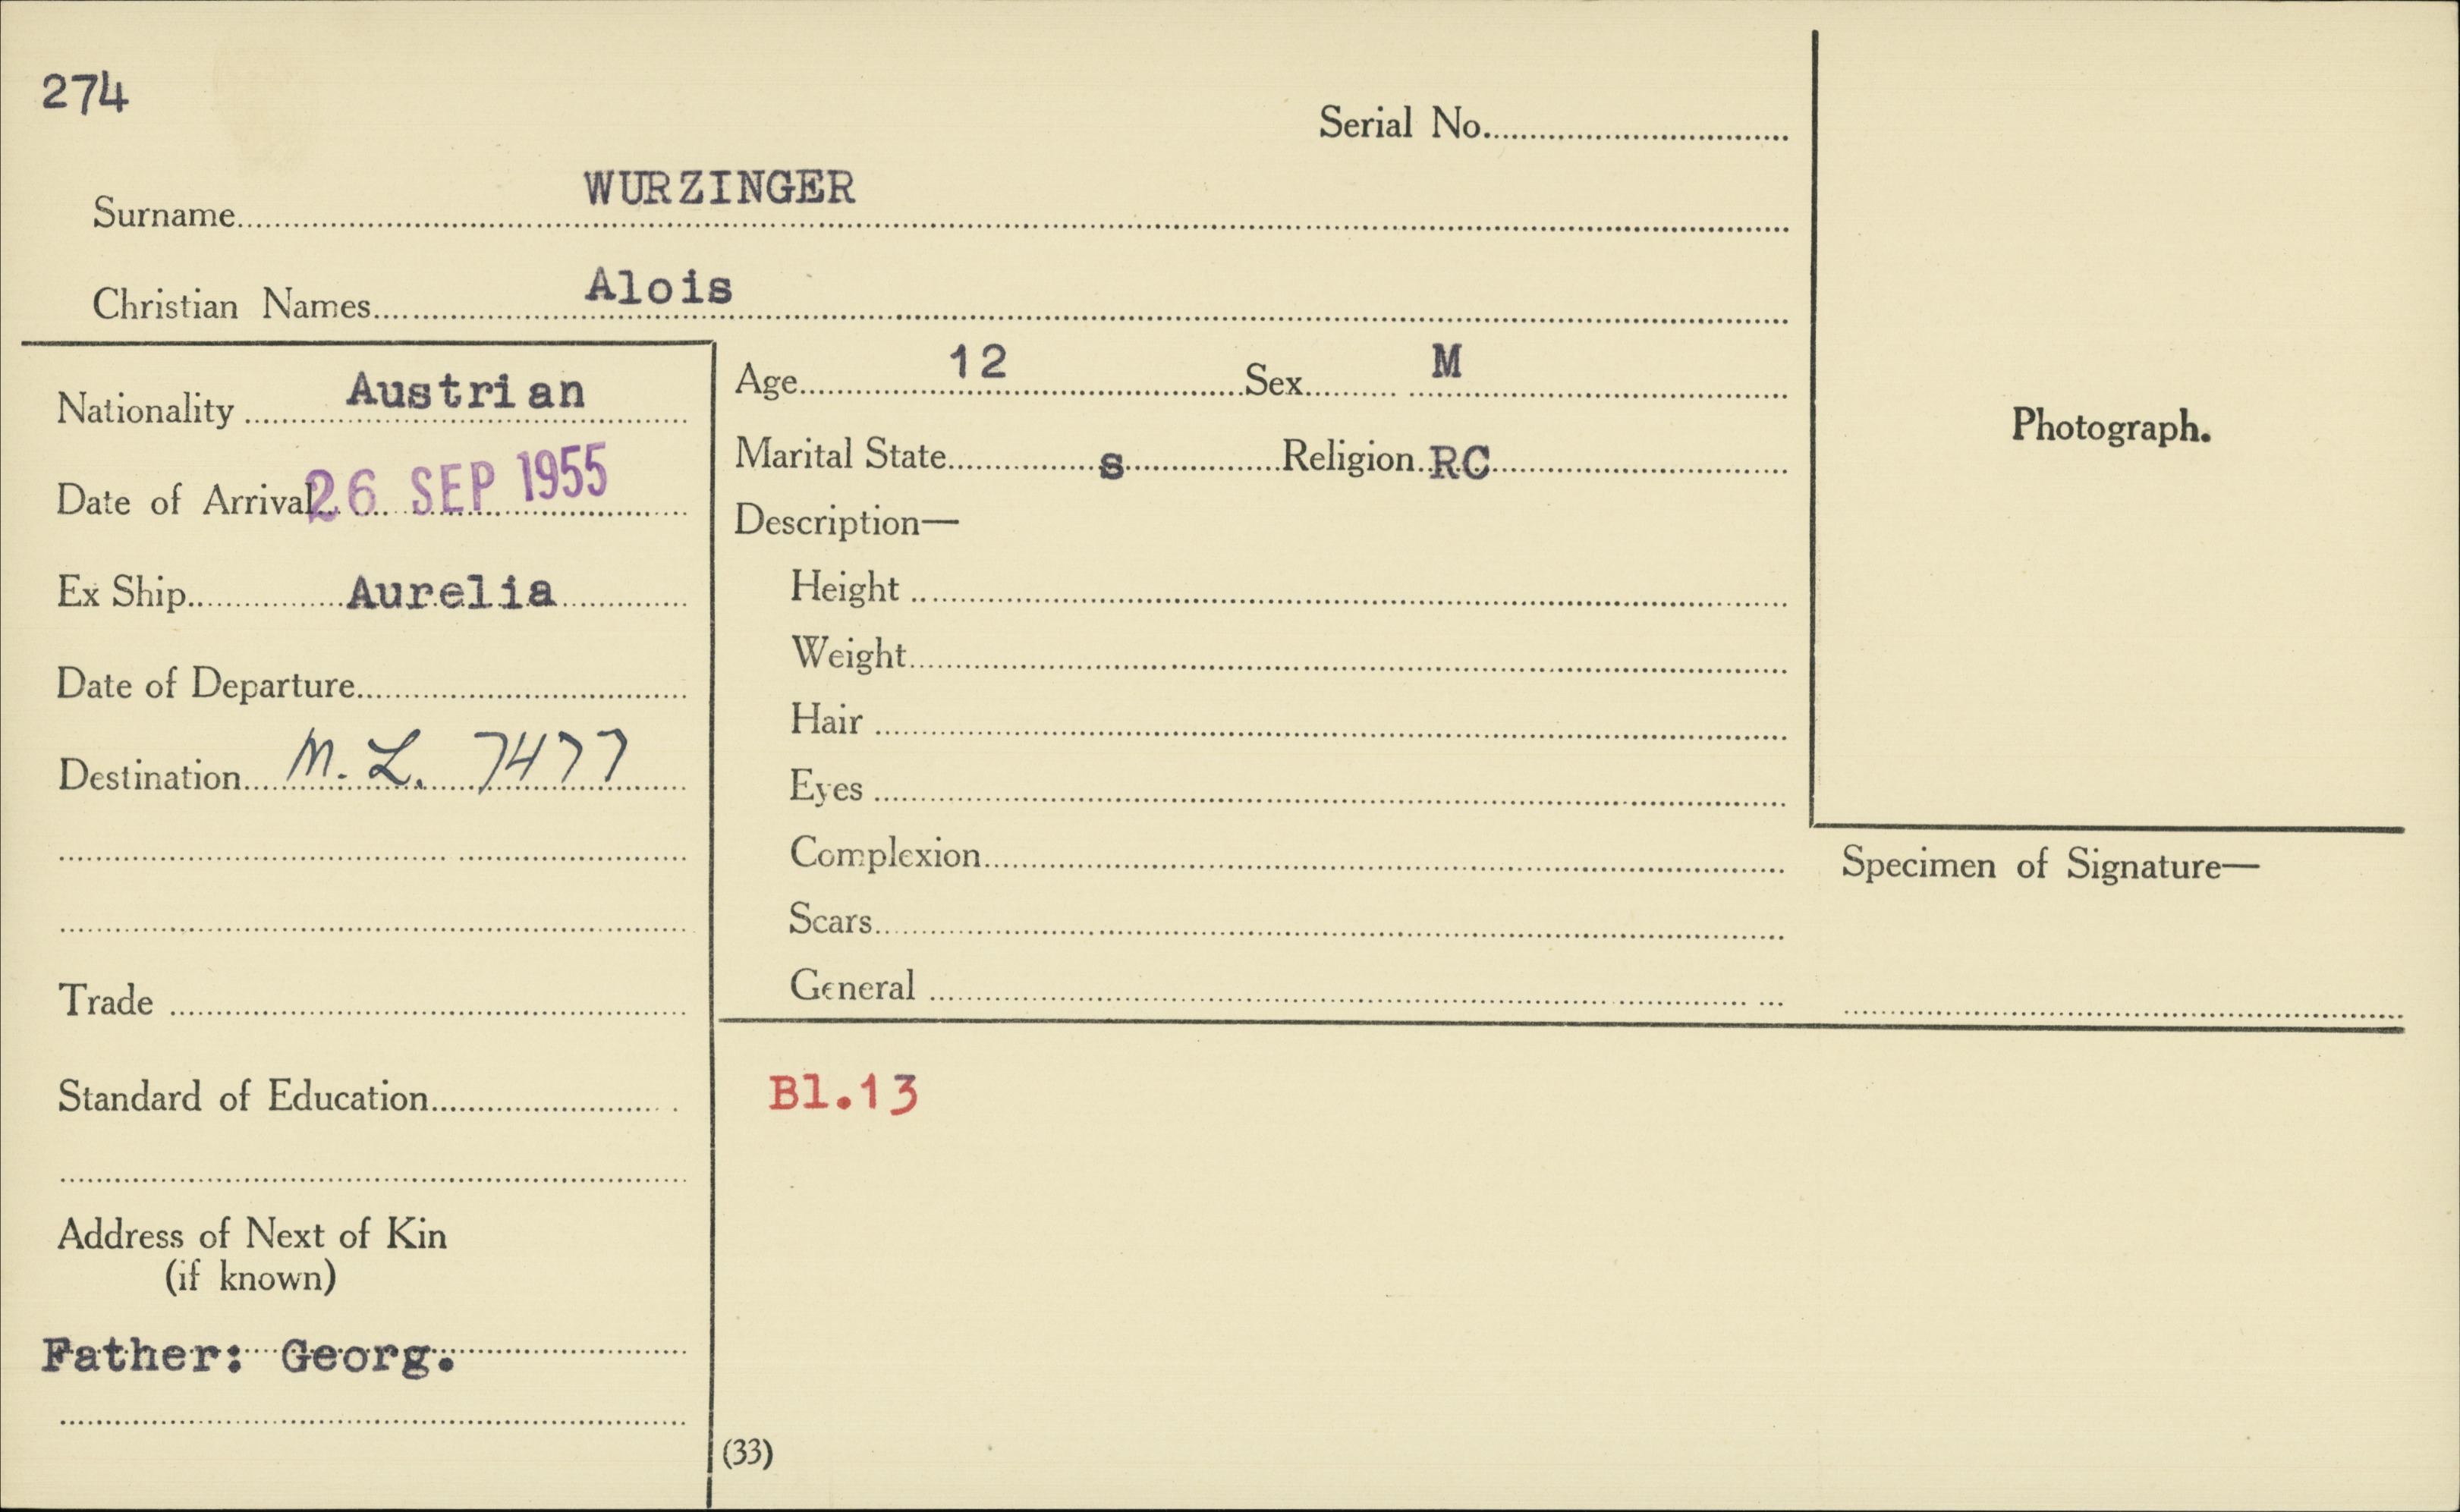 274
Serial No.
Surname WURZINGER
Christian Names Alois
Nationality Austrian
Date of Arrival 26 SEP 1955
Ex Ship Aurelia
Date of Departure
Destination M. L. 7477
Trade
Standard of Education
Address of Next of Kin
(if known)
Father: Georg.
Age 12 Sex M
Marital State s Religion RC
Description—
Height
Weight
Hair
Eyes
Complexion
Scars
General
Photograph.
Specimen of Signature—
Bl.13
(33)